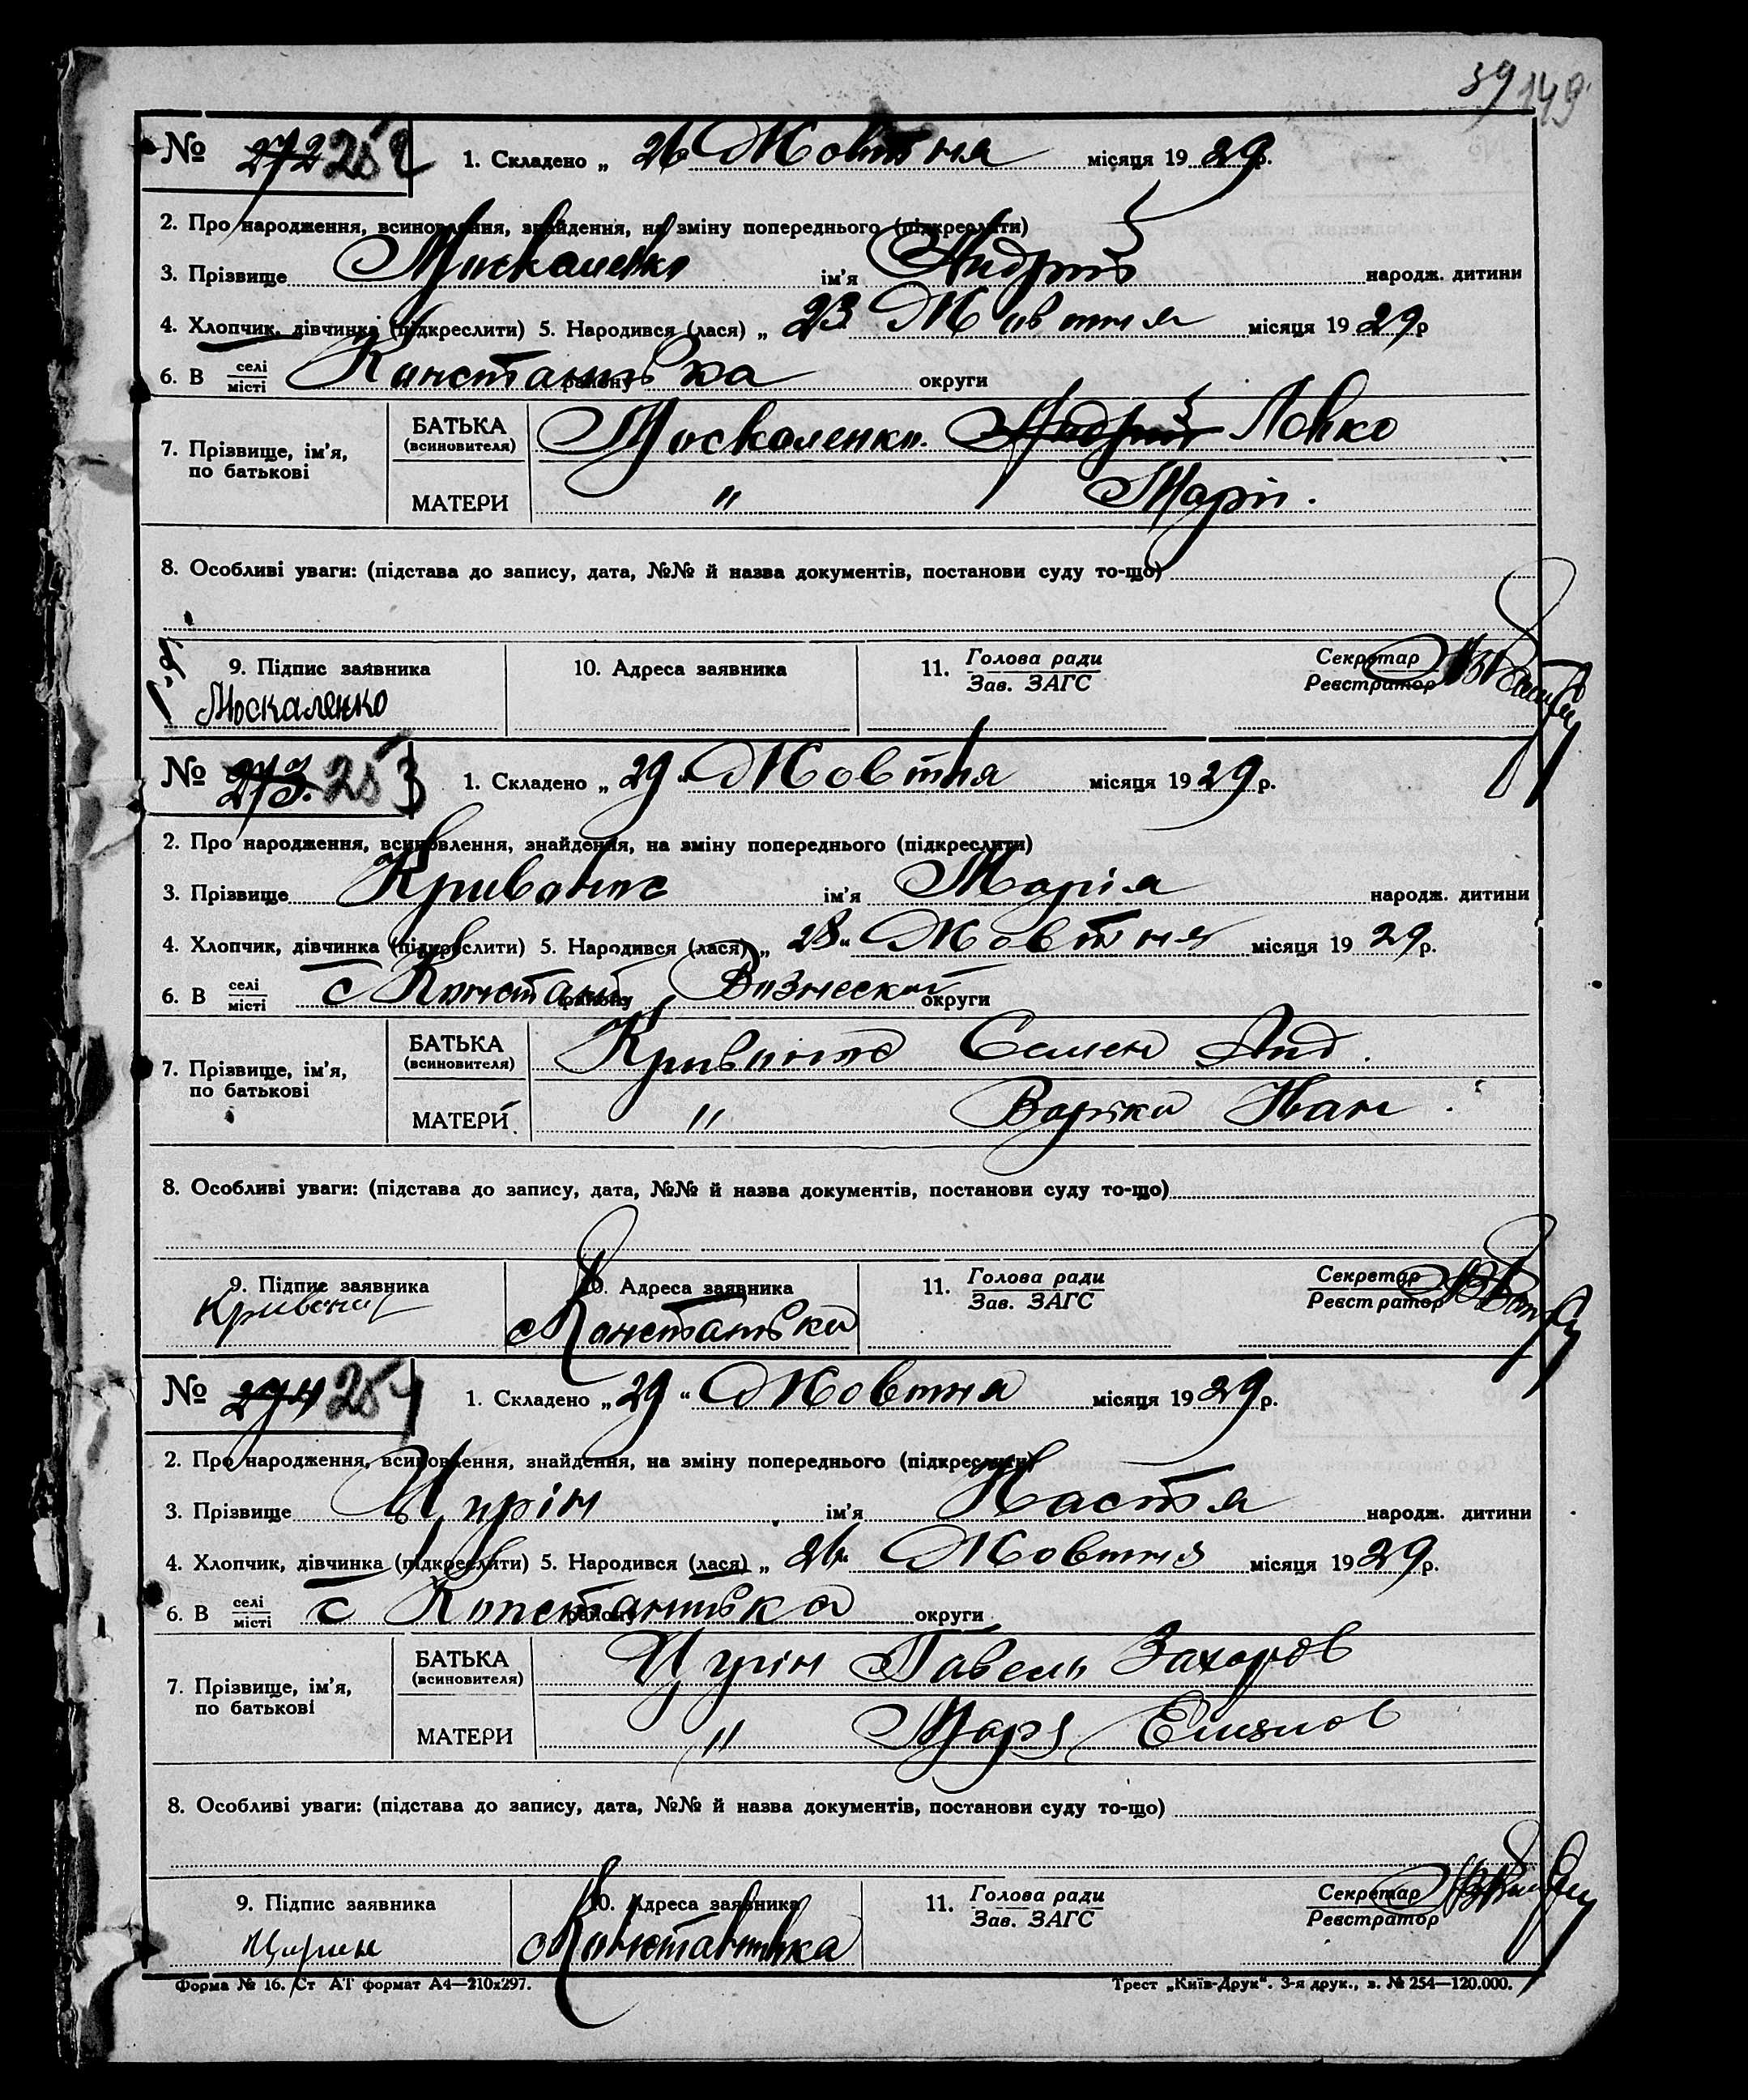 39 149
№ 272 252 1. Складено „ 26 Жовтня місяця 1929р.
2. Про народження, всиновлення, знайдення, на зміну попереднього (підкреслити)
3. Прізвище Москаленко ім'я Андрій народж. дитини
4. Хлопчик, дівчинка (підкреслити) 5. Народився (лася) „ 23 Жовтня місяця 1929р
6. В селі/місті Констанывка району округи
7. Прізвище, ім'я, по батькові
БАТЬКА (всиновителя) Москаленко Андрій Левко
МАТЕРИ " Марія.
8. Особливі уваги: (підстава до запису, дата, №№ й назва документів, постанови суду то-що)
9. Підпис заявника 10. Адреса заявника 11. Голова ради/Зав. ЗАГС Секретар/Реєстратор
Москаленко
№ 273. 253 1. Складено „ 29 " Жовтня місяця 1929р.
2. Про народження, всиновлення, знайдення, на зміну попереднього (підкреслити)
3. Прізвище Кривонос ім'я Марія народж. дитини
4. Хлопчик, дівчинка (підкреслити) 5. Народився (лася) „ 28" Жовтня місяця 1929р.
6. В селі/місті с Констант району Вознеский округи
7. Прізвище, ім'я, по батькові
БАТЬКА (всиновителя) Кривонос Семен Анд.
МАТЕРИ " Варька Иван.
8. Особливі уваги: (підстава до запису, дата, №№ й назва документів, постанови суду то-що)
9. Підпис заявника 10. Адреса заявника 11. Голова ради/Зав. ЗАГС Секретар/Реєстратор
Кривонос с Констанывка
№ 274 254 1. Складено „ 29 " Жовтня місяця 1929р.
2. Про народження, всиновлення, знайдення, на зміну попереднього (підкреслити)
3. Прізвище Цурін ім'я Настя народж. дитини
4. Хлопчик, дівчинка (підкреслити) 5. Народився (лася) „ 26" Жовтня місяця 1929р.
6. В селі/місті с Константинівка району округи
7. Прізвище, ім'я, по батькові
БАТЬКА (всиновителя) Цурін Павель Захаров
МАТЕРИ " Мар
8. Особливі уваги: (підстава до запису, дата, №№ й назва документів, постанови суду то-що)
9. Підпис заявника 10. Адреса заявника 11. Голова ради/Зав. ЗАГС Секретар/Реєстратор
Цурин с Константинка
Форма № 16. Ст АТ формат А4—210х297. Трест „Київ-Друк". 3-я друк., з. № 254—120.000.